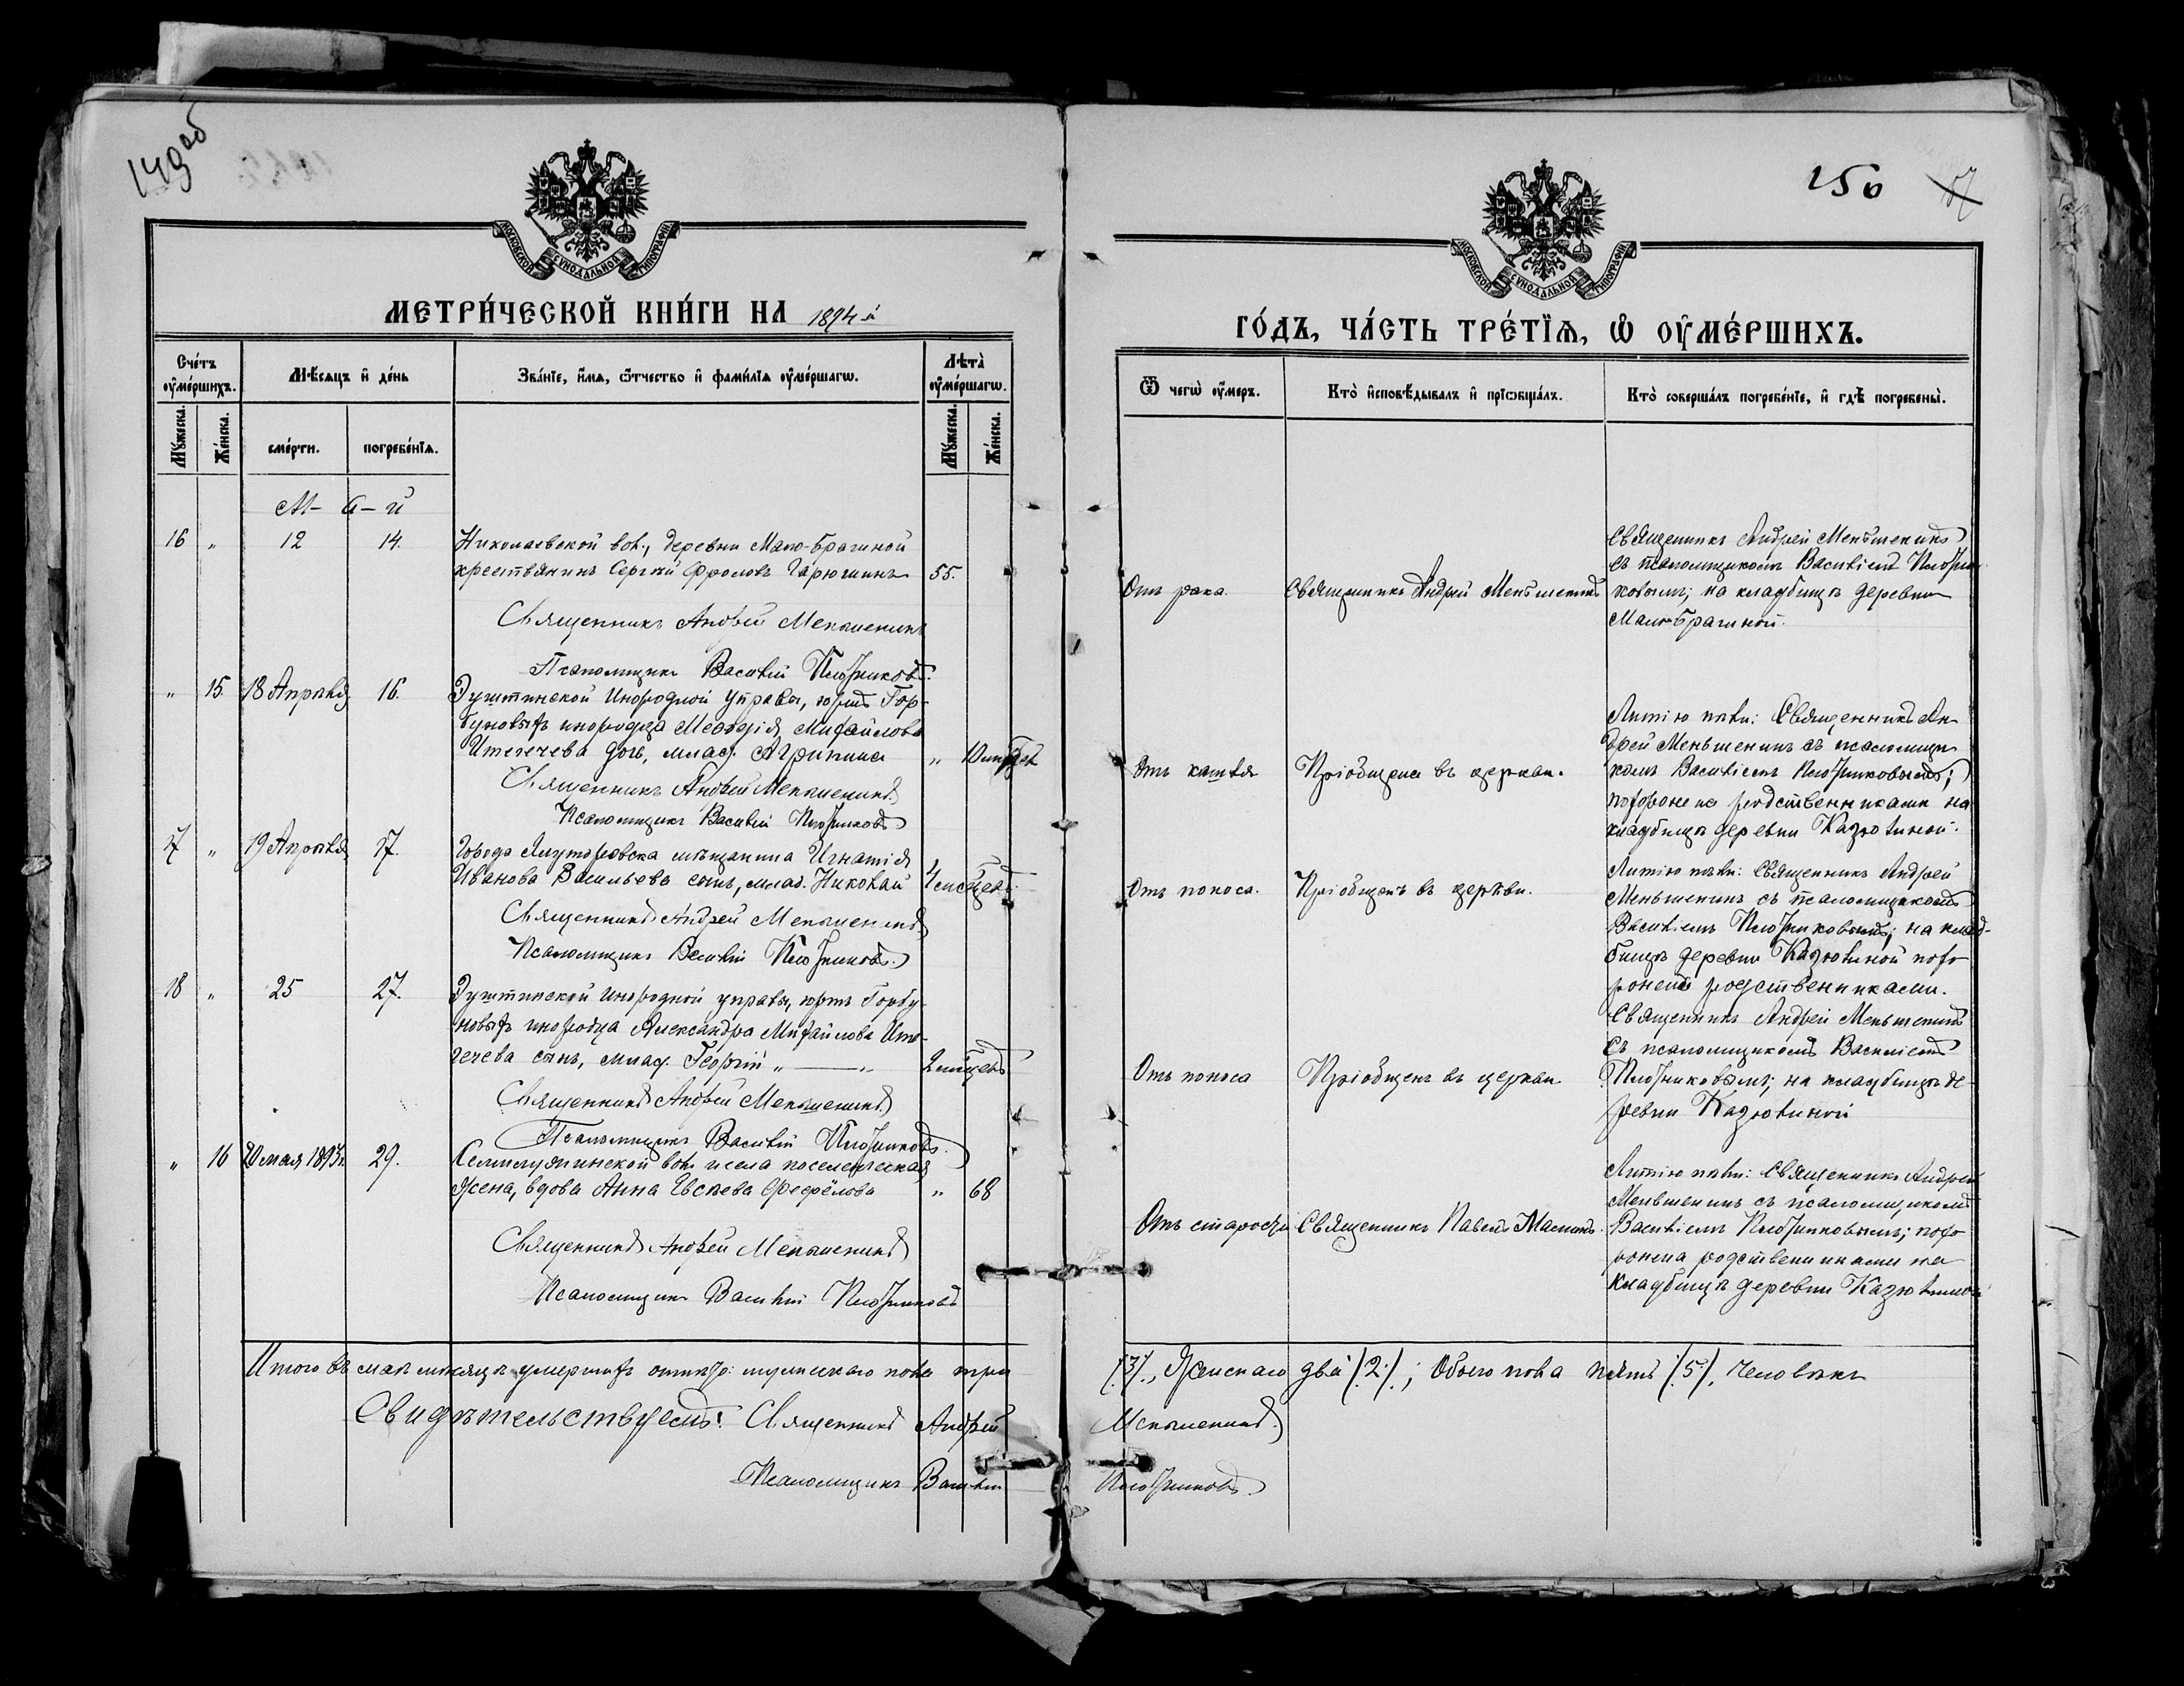 149 об
МОСКОВСКОЙ СѴНОДАЛЬНОЙ ТИПОГРАФІИ
МЕТРИ́ЧЕСКОЙ КНИ́ГИ НА 1894 й
Сче́тъ оумершихъ.
Мѣсяцъ и де́нь
Зва́нїе, имя, отчество и фами́лїя оумершагω.
Лѣта̀ оумершагω.
Мꙋжеска.
Же́нска.
сме́рти.
погребе́нїя.
Мꙋжеска.
Же́нска.
М- а- й
16 " 12 14. Николаевской вол., деревни Мало-Брагиной
крестьянинъ Сергій Фроловъ Гарюшинъ 55.
Священникъ Андрей Меньшенинъ
Псаломщикъ Василій Плотниковъ.
" 15. 18 Апрѣля 16. Эуштинской Инородной Управы, юртъ Гор-
буновыхъ инородца Меѳодія Михайлова
Итегечева дочь, млад. Агрипина " 10 мѣсяцевъ
Священникъ Андрей Меньшенинъ
Псаломщикъ Василій Плотниковъ
17 " 19 Апрѣля 17. Города Ялуторовска мѣщанина Игнатія
Иванова Васильева сынъ, млад. Николай 4 мѣсяцевъ
Священникъ Андрей Меньшенинъ
Псаломщикъ Василій Плотниковъ.
18 " 25 27. Эуштинской инородной управы, юртъ Горбу-
новыхъ инородца Александра Михайлова Ите-
гечева сынъ, млад. Георгій " — " 2 мѣсяцевъ
Священникъ Андрей Меньшенинъ
Псаломщикъ Василій Плотниковъ.
" 16 20 мая 1893 г. 29. Семилужинской вол. и села поселенческая
жена, вдова Анна Евсѣева Фефёлова " 68
Священникъ Андрей Меньшенинъ
Псаломщикъ Василій Плотниковъ
Итого въ маѣ мѣсяцѣ умершихъ отпѣто: мужескаго пола три
Свидѣтельствуемъ: Священникъ Андрей
Псаломщикъ Василій
150 57
МОСКОВСКОЙ СѴНОДАЛЬНОЙ ТИПОГРАФІИ
ГО́ДЪ, ЧА́СТЬ ТРЕ́ТЇѦ, Ѡ ОУМЕ́РШИХЪ.
Ѿ чегω оумеръ.
Кто̀ исповѣдывалъ и прїωбща́лъ.
Кто̀ соверша́лъ погребе́нїе, и гдѣ погребены̀.
Отъ рака. Священникъ Андрей Меньшенинъ
Священникъ Андрей Меньшенинъ
съ псаломщикомъ Василіемъ Плотни-
ковымъ; на кладбищѣ деревни
Мало-Брагиной.
Отъ кашля Пріобщена въ церкви.
Литію пѣли: Священникъ Ан-
дрей Меньшенинъ съ псаломщи-
комъ Василіемъ Плотниковымъ;
похоронена родственниками на
кладбищѣ деревни Казютиной.
Отъ поноса. Пріобщенъ въ церкви.
Литію пѣли: Священникъ Андрей
Меньшенинъ съ псаломщикомъ
Василіемъ Плотниковымъ; на клад-
бищѣ деревни Казютиной похо-
роненъ родственниками.
Отъ поноса Пріобщенъ въ церкви
Священникъ Андрей Меньшенинъ
съ псаломщикомъ Василіемъ
Плотниковымъ; на кладбищѣ де-
ревни Казютиной
Отъ старости Священникъ Павелъ Масловъ.
Литію пѣли: Священникъ Андрей
Меньшенинъ съ псаломщикомъ
Василіемъ Плотниковымъ; похо-
ронена родственниками на
кладбищѣ деревни Казютиной
/3/., Женскаго два /2/.; Обоего пола пять /5/. человѣкъ
Меньшенинъ.
Плотниковъ.